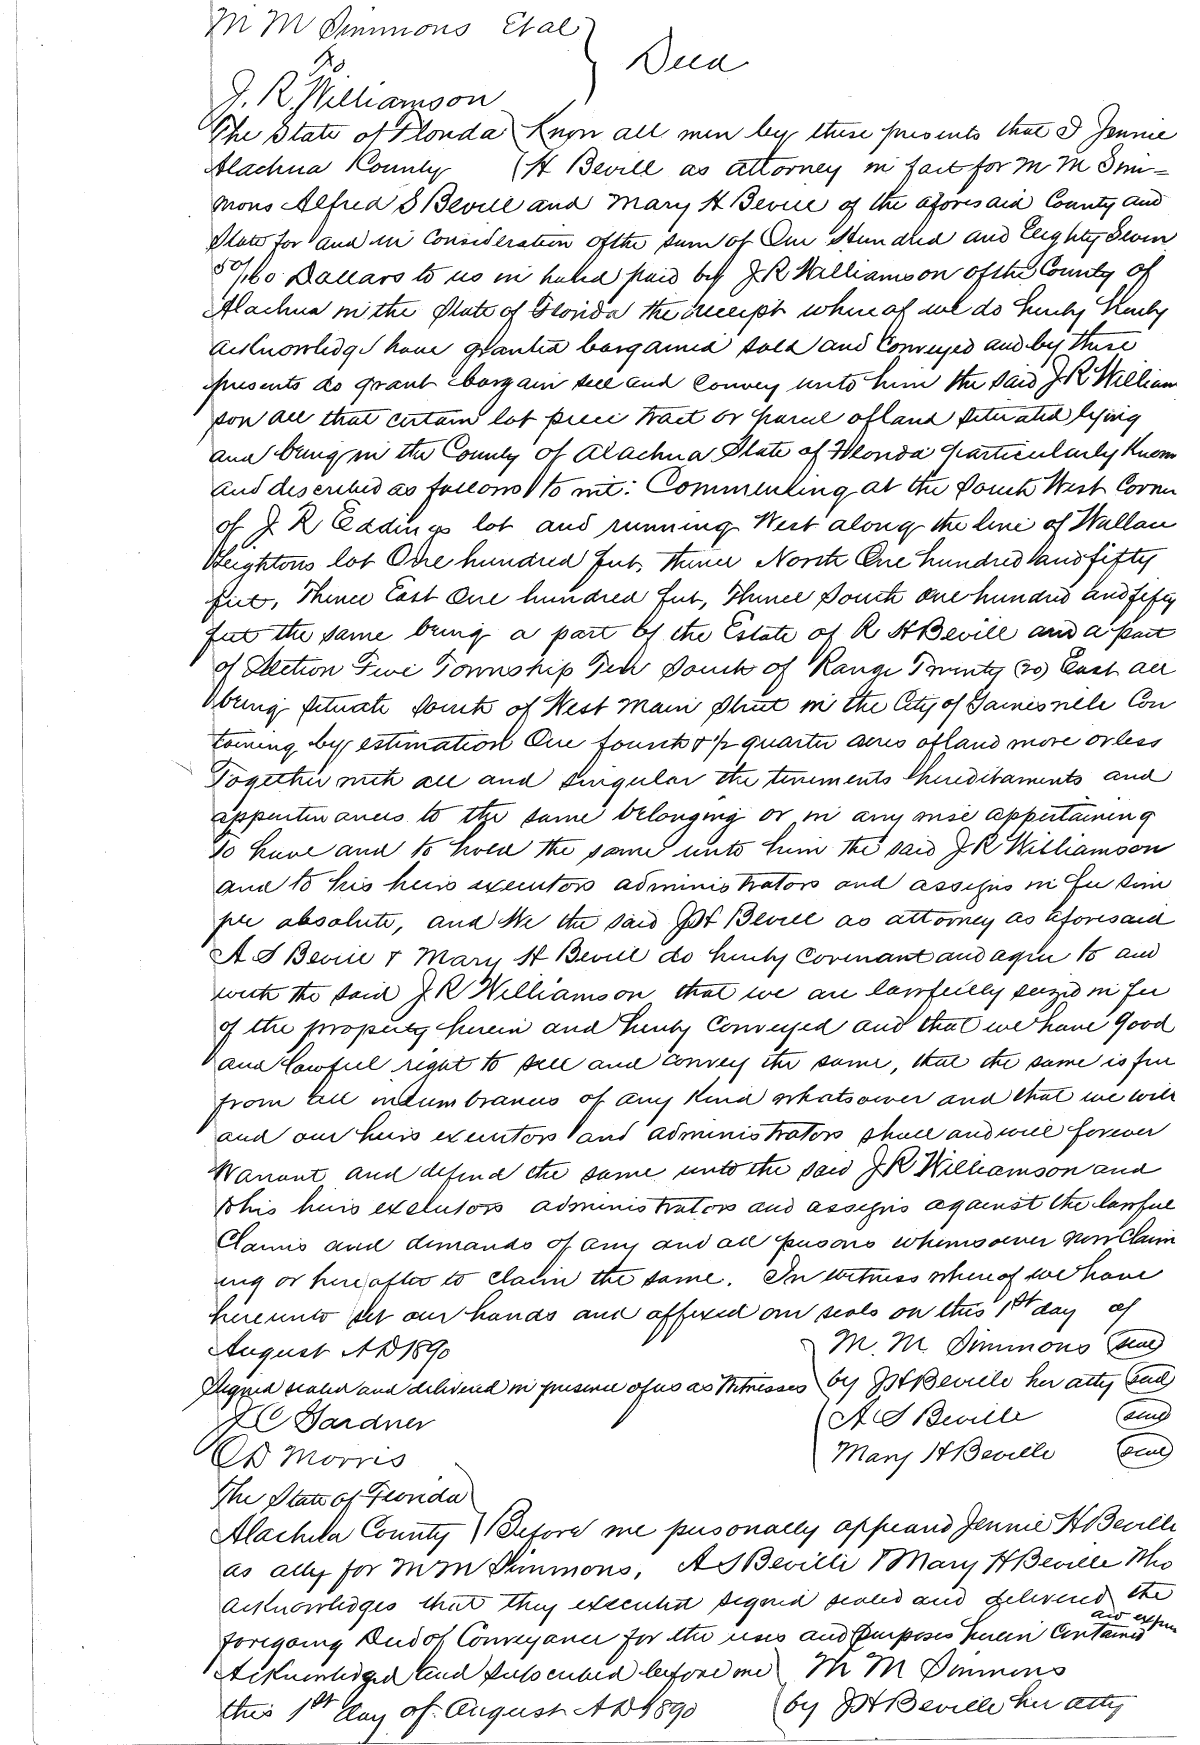 M M Simmons Et al
To } Deed
J. R. Williamson
The State of Florida } Know all men by these presents that I Jennie
Alachua County } H Bevill as attorney in fact for M M Sim=
mons Alfred S Bevill and Mary H Bevill of the aforesaid County and
State for and in consideration of the sum of One Hundred and Eighty Seven
50/100 Dollars to us in hand paid by J R Williamson of the County of
Alachua in the State of Florida the receipt where of we do hereby hereby
acknowledge have granted bargained sold and conveyed and by these
presents do grant bargain sell and convey unto him the said J R William
son all that certain lot piece tract or parcel of land situated lying
and being in the County of Alachua State of Florida particularly known
and described as follows to wit: Commencing at the South West Corner
of J R Eddings lot and running West along the line of Wallace
Heightons lot One hundred feet, thence North One hundred and fifty
feet, Thence East One hundred feet, Thence South one hundred and fifty
feet the same being a part of the Estate of R H Bevill and a part
of Section Five Township Ten South of Range Twenty (20) East all
being situate South of West Main Street in the City of Gainesville Con
taining by estimation One fourth & 1/2 quarter acres of land more or less
Together with all and singular the tenements hereditaments and
appertinances to the same belonging or in any wise appertaining
To have and to hold the same unto him the said J R Williamson
and to his heirs executors administrators and assigns in fee sim
ple absolute, and We the said J H Bevill as attorney as aforesaid
A S Bevill & Mary H Bevill do hereby Covenant and agree to and
with the said J R Williamson that we are lawfully seized in fee
of the property herein and hereby conveyed and that we have good
and lawful right to sell and convey the same, that the same is free
from all incumbrances of any kind whatsoever and that we will
and our heirs executors and administrators shall and will forever
Warrant and defend the same unto the said J R Williamson and
his heirs executors administrators and assigns against the lawful
Claims and demands of any and all persons whomsoever now Claim
ing or here after to claim the same. In witness where of we have
hereunto set our hands and affixed our seals on this 1st day of
August A D 1890 M. M. Simmons (seal)
Signed sealed and delivered in presence of us as Witnesses } by J H Beville her atty (seal)
J C Gardner A S Beville (seal)
C D Morris Mary H Beville (seal)
The State of Florida
Alachua County } Before me personally appeared Jennie H Beville
as atty for M M Simmons, A S Beville & Mary H Beville Who
acknowledges that they executed signed sealed and delivered the
foregoing Deed of Conveyance for the uses and purposes herein Contained and expres
Acknowledged and subscribed before me } M M Simmons
this 1st day of August A D 1890 } by J H Beville her atty